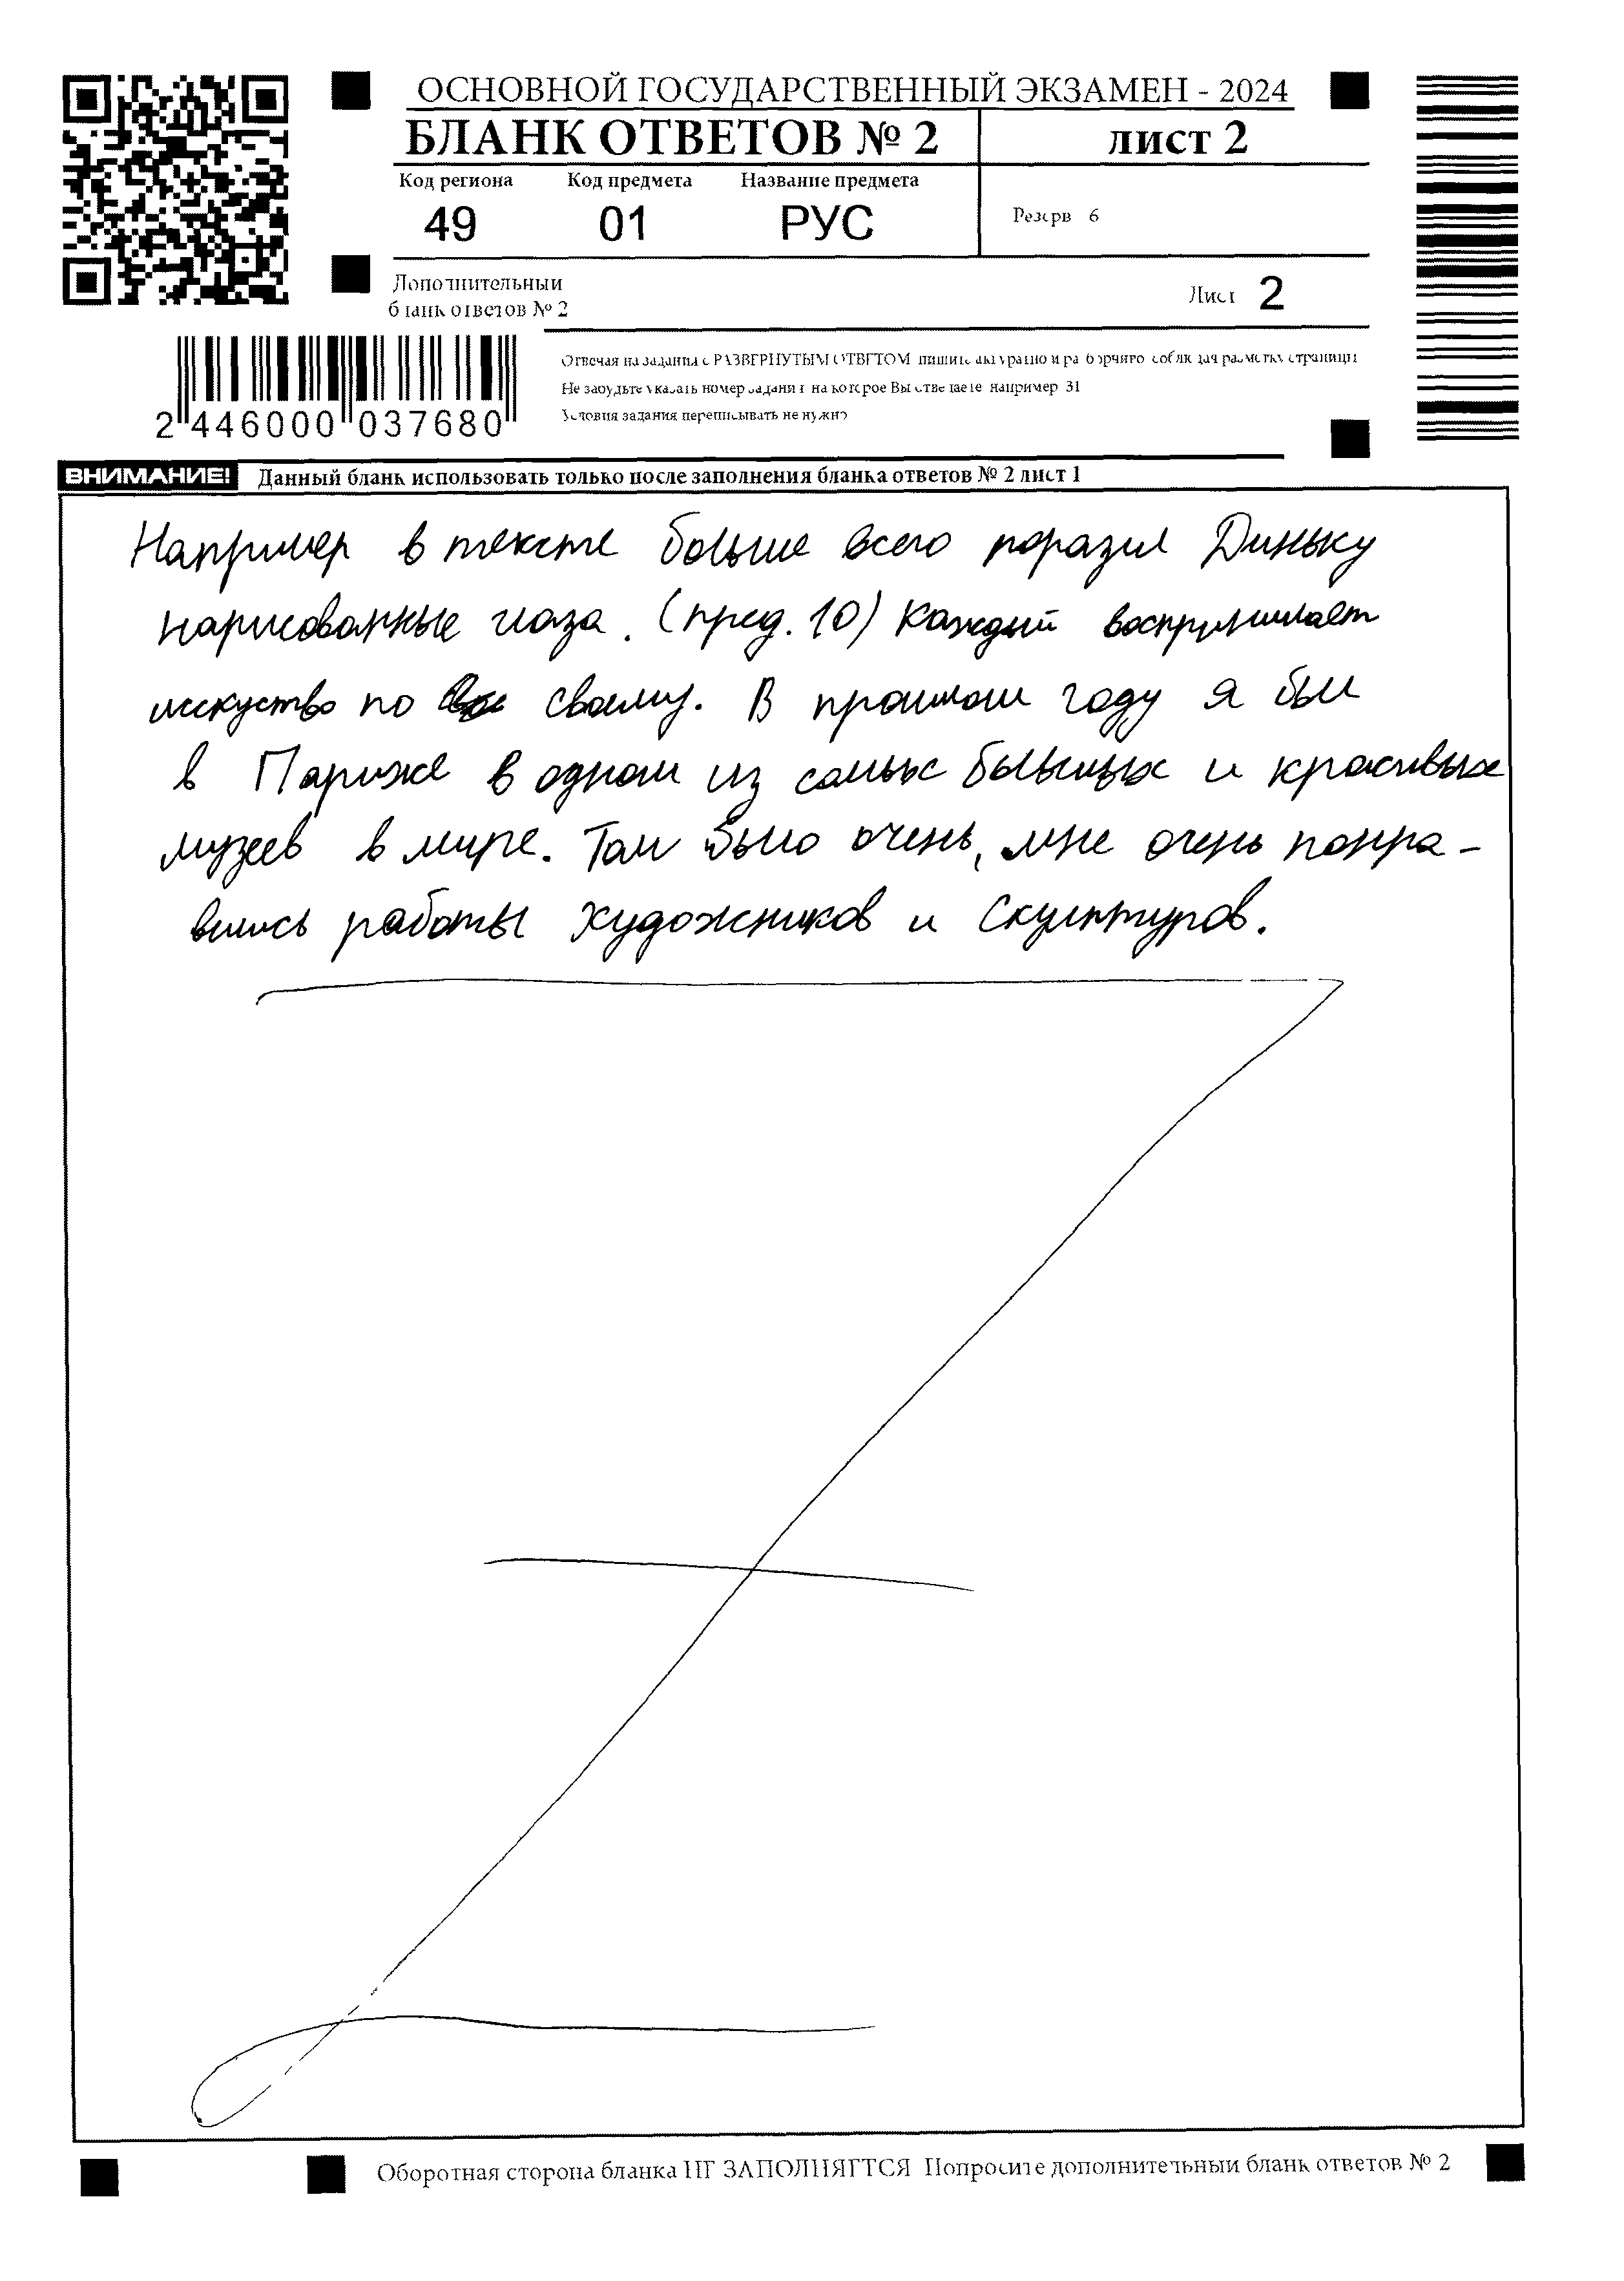 ОСНОВНОЙ ГОСУДАРСТВЕННЫЙ ЭКЗАМЕН - 2024
БЛАНК ОТВЕТОВ № 2
лист 2
Код региона Код предмета Название предмета
49 01 РУС
Резерв 6
Дополнительный
бланк ответов № 2
Лист 2
Отвечая на задания с РАЗВЕРНУТЫМ ОТВЕТОМ пишите аккуратно и разборчиво соблюдая разметку страницы
Не забудьте указать номер задания на которое Вы отвечаете например 31
Условия задания переписывать не нужно
2 446000 037680
ВНИМАНИЕ! Данный бланк использовать только после заполнения бланка ответов № 2 лист 1
Например в тексте больше всего поразил Диньку
нарисованные глаза. (пред. 10) Каждый воспринимает
исскуство по своему. В прошлом году я был
в Париже в одном из самых больших и красивых
музеев в мире. Там было очень, мне очень понра-
вились работы художников и скульптуров.
Оборотная сторона бланка НЕ ЗАПОЛНЯЕТСЯ Попросите дополнительный бланк ответов № 2